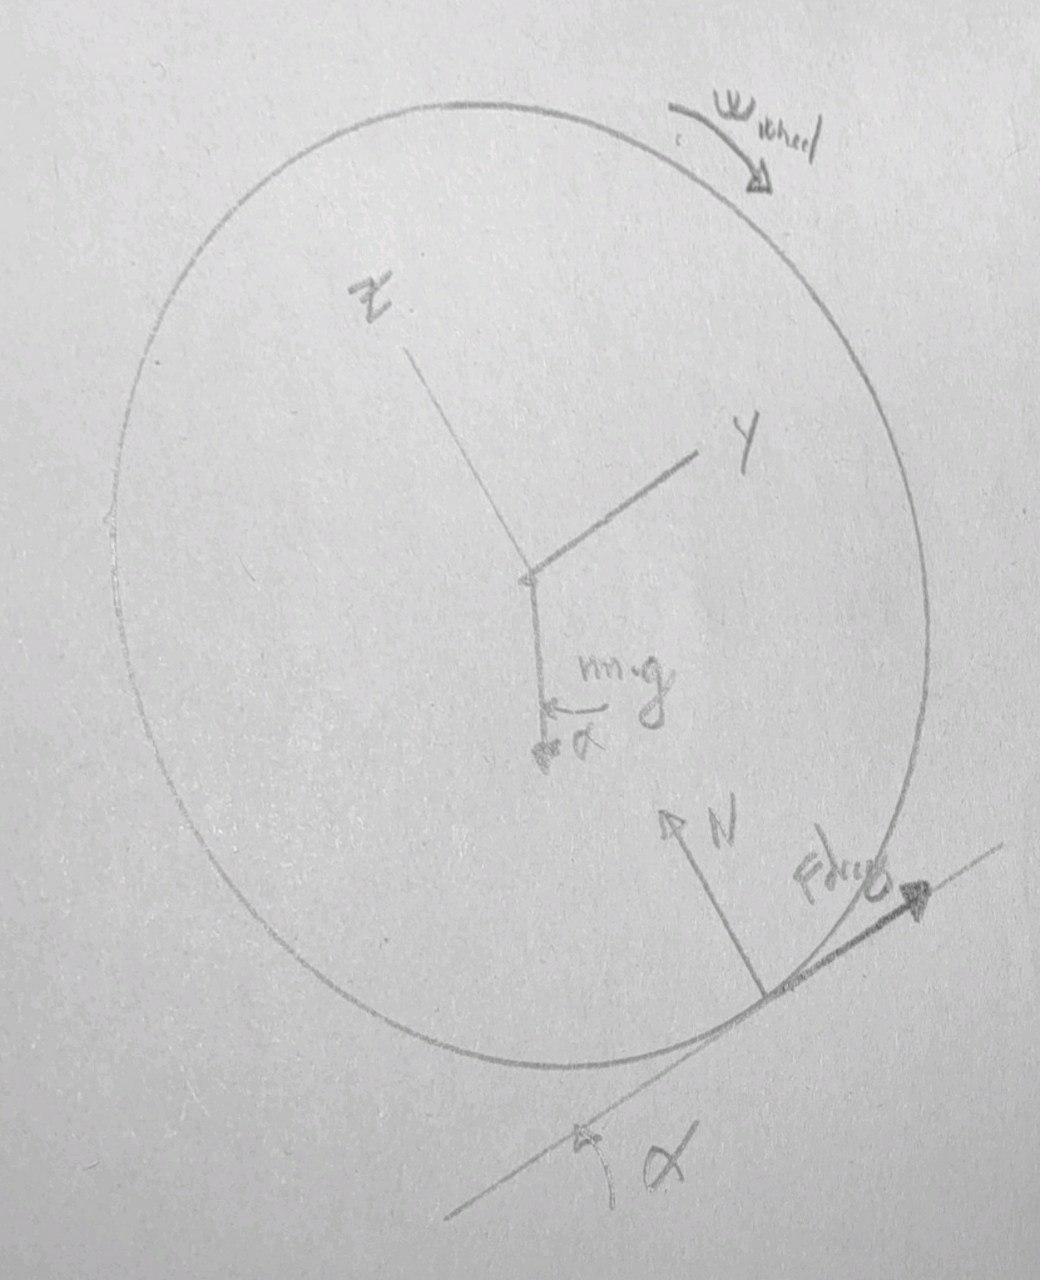 ω wheel
Z
Y
m.g
α
N
Fdrug
α